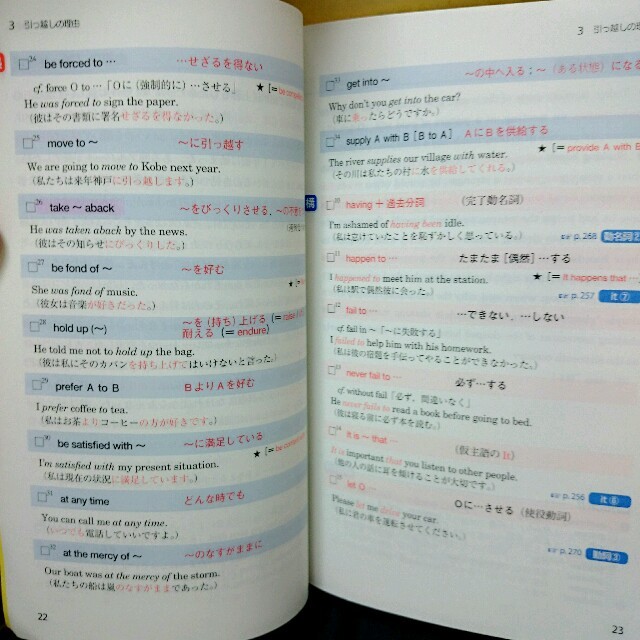 3 引っ越しの理由
24 be forced to … …せざるを得ない
cf. force O to … 「Oに(強制的に)…させる」 ★[=be
He was forced to sign the paper.
(彼はその書類に署名せざるを得なかった。)
25 move to ～ ～に引っ越す
We are going to move to Kobe next year.
(私たちは来年神戸に引っ越します。)
26 take ～ aback ～をびっくりさせる,
He was taken aback by the news.
(彼はその知らせにびっくりした。)
27 be fond of ～ ～を好む
She was fond of music.
(彼女は音楽が好きだった。)
28 hold up (～) ～を(持ち)上げる
耐える (= endure)
He told me not to hold up the bag.
(彼は私にそのカバンを持ち上げてはいけないと言った。)
29 prefer A to B BよりAを好む
I prefer coffee to tea.
(私はお茶よりコーヒーの方が好きです。)
30 be satisfied with ～ ～に満足している
★[=be
I'm satisfied with my present situation.
(私は現在の状況に満足しています。)
31 at any time どんな時でも
You can call me at any time.
(いつでも電話していいですよ。)
32 at the mercy of ～ ～のなすがままに
Our boat was at the mercy of the storm.
(私たちの船は嵐のなすがままであった。)
22
3 引っ越しの理
33 get into ～ ～の中へ入る; ～(ある状態)になる
Why don't you get into the car?
(車に乗ったらどうですか。)
34 supply A with B [B to A] AにBを供給する
★[= provide A with B
The river supplies our village with water.
(その川は私たちの村に水を供給してくれる。)
having + 過去分詞 (完了動名詞)
I'm ashamed of having been idle.
(私は怠けていたことを恥ずかしく思っている。) p. 268 動名詞
11 happen to … たまたま[偶然]…する
I happened to meet him at the station. ★[= It happens that
(私は駅で偶然彼に会った。) p. 257 it ⑦
12 fail to … …できない, …しない
cf. fail in ～「～に失敗する」
I failed to help him with his homework.
(私は彼の宿題を手伝ってやることができなかった。)
13 never fail to … 必ず…する
cf. without fail「必ず、間違いなく」
He never fails to read a book before going to bed.
(彼は寝る前に必ず本を読む。)
14 It is ～ that … (仮主語の It)
It is important that you listen to other people.
(他の人の話に耳を傾けることが大切です。) p. 256 it ⑥
15 let O … Oに…させる (使役動詞)
Please let me drive your car.
(私に君の車を運転させてください。) p. 270
23